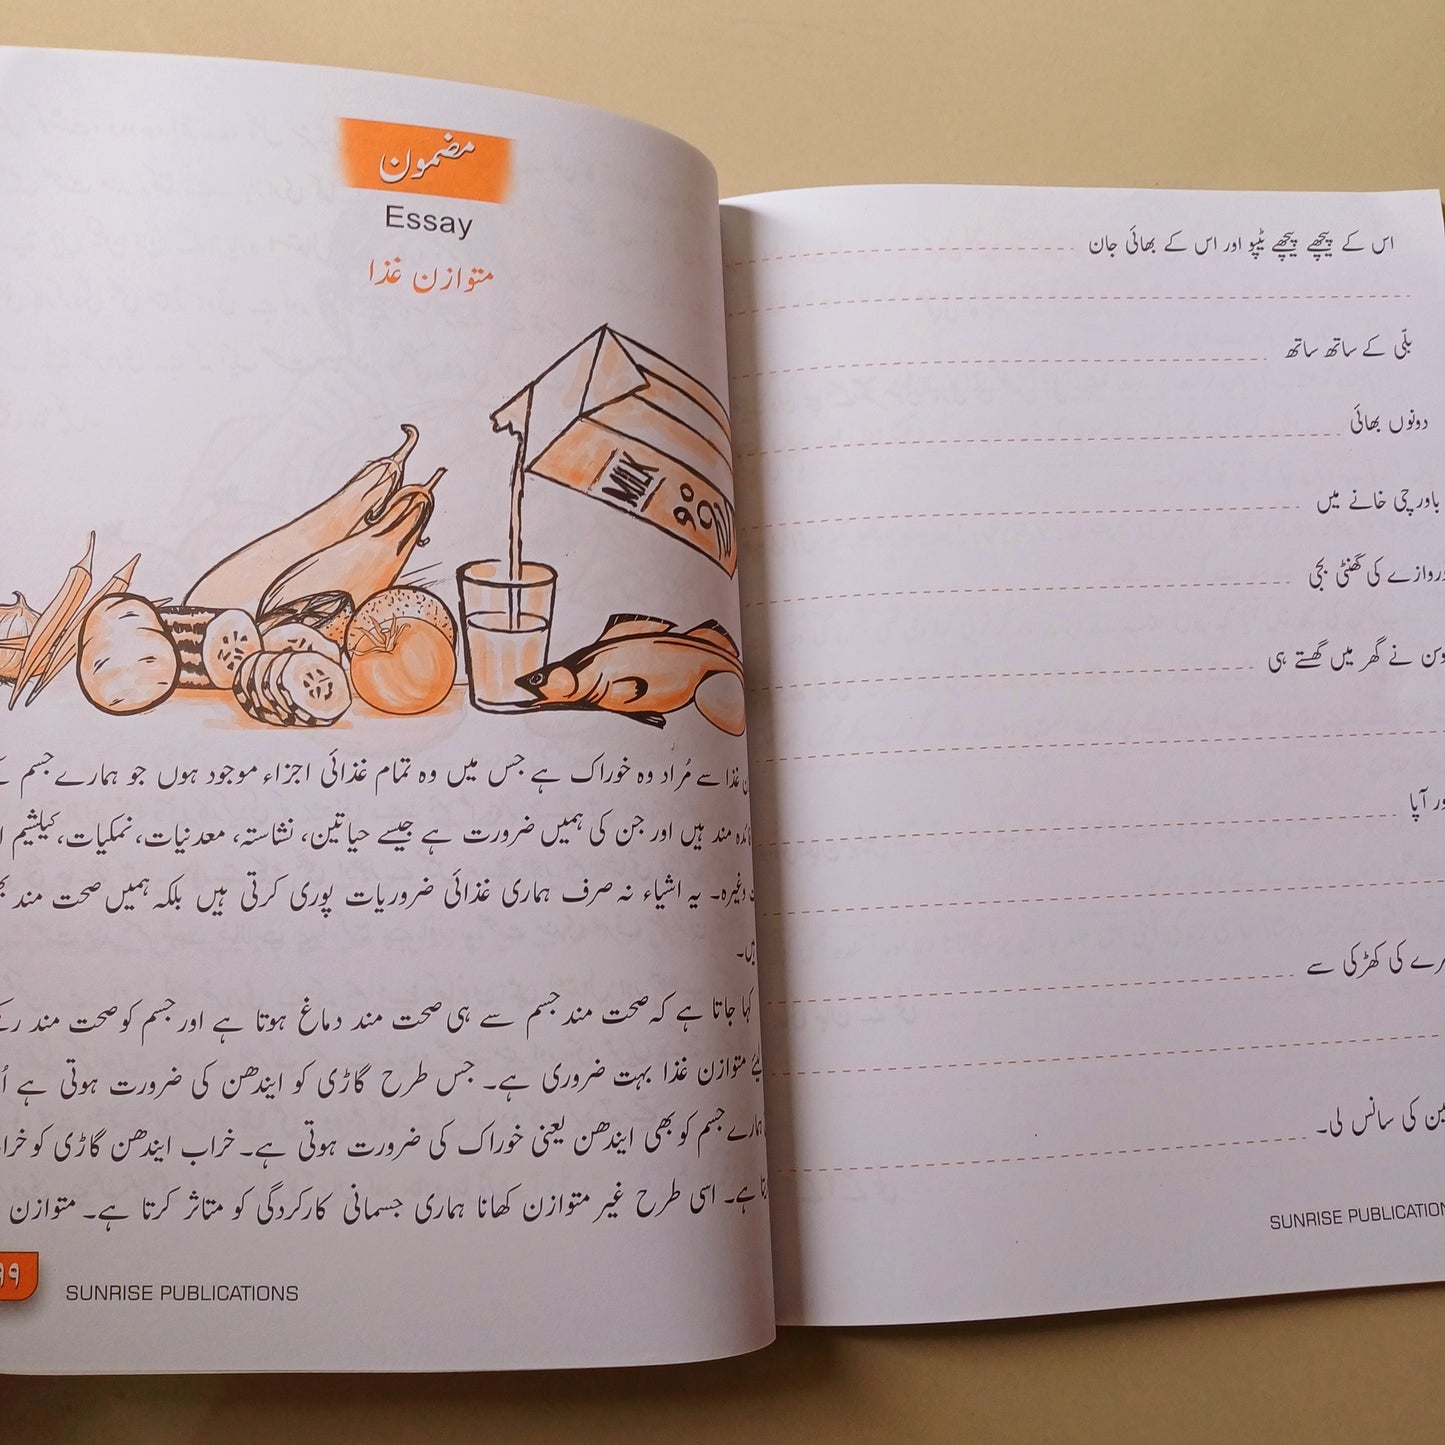 اس کے پیچھے پیچھے ٹیپو اور اس کے بھائی جان
بلّی کے ساتھ ساتھ
دونوں بھائی
باورچی خانے میں
کی گھنٹی بجی
نے گھر میں گھستے ہی
آپا
کی کھڑکی سے
کی سانس لی۔
SUNRISE
مضمون
Essay
متوازن غذا
MILK
غذا سے مُراد وہ خوراک ہے جس میں وہ تمام غذائی اجزاء موجود ہوں جو ہمارے جسم
مند ہیں اور جن کی ہمیں ضرورت ہے جیسے حیاتین، نشاستہ، معدنیات، نمکیات، کیلشیم
وغیرہ۔ یہ اشیاء نہ صرف ہماری غذائی ضروریات پوری کرتی ہیں بلکہ ہمیں صحت مند
کہا جاتا ہے کہ صحت مند جسم سے ہی صحت مند دماغ ہوتا ہے اور جسم کو صحت مند
متوازن غذا بہت ضروری ہے۔ جس طرح گاڑی کو ایندھن کی ضرورت ہوتی ہے
ہمارے جسم کو بھی ایندھن یعنی خوراک کی ضرورت ہوتی ہے۔ خراب ایندھن گاڑی کو
ہے۔ اسی طرح غیر متوازن کھانا ہماری جسمانی کارکردگی کو متاثر کرتا ہے۔ متوازن
SUNRISE PUBLICATIONS